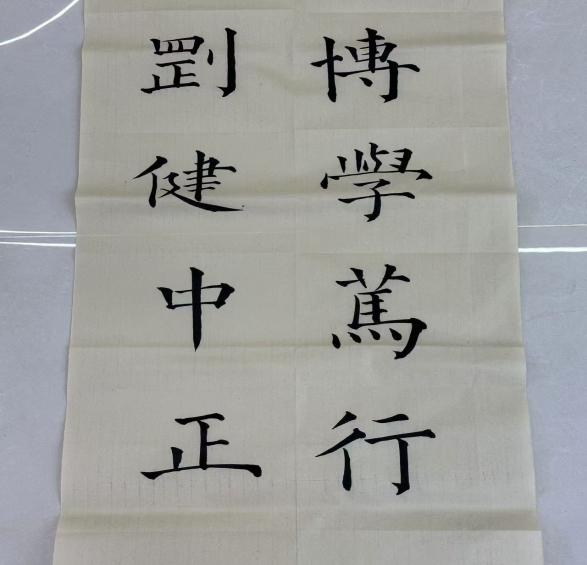 博學篤行
剛健中正